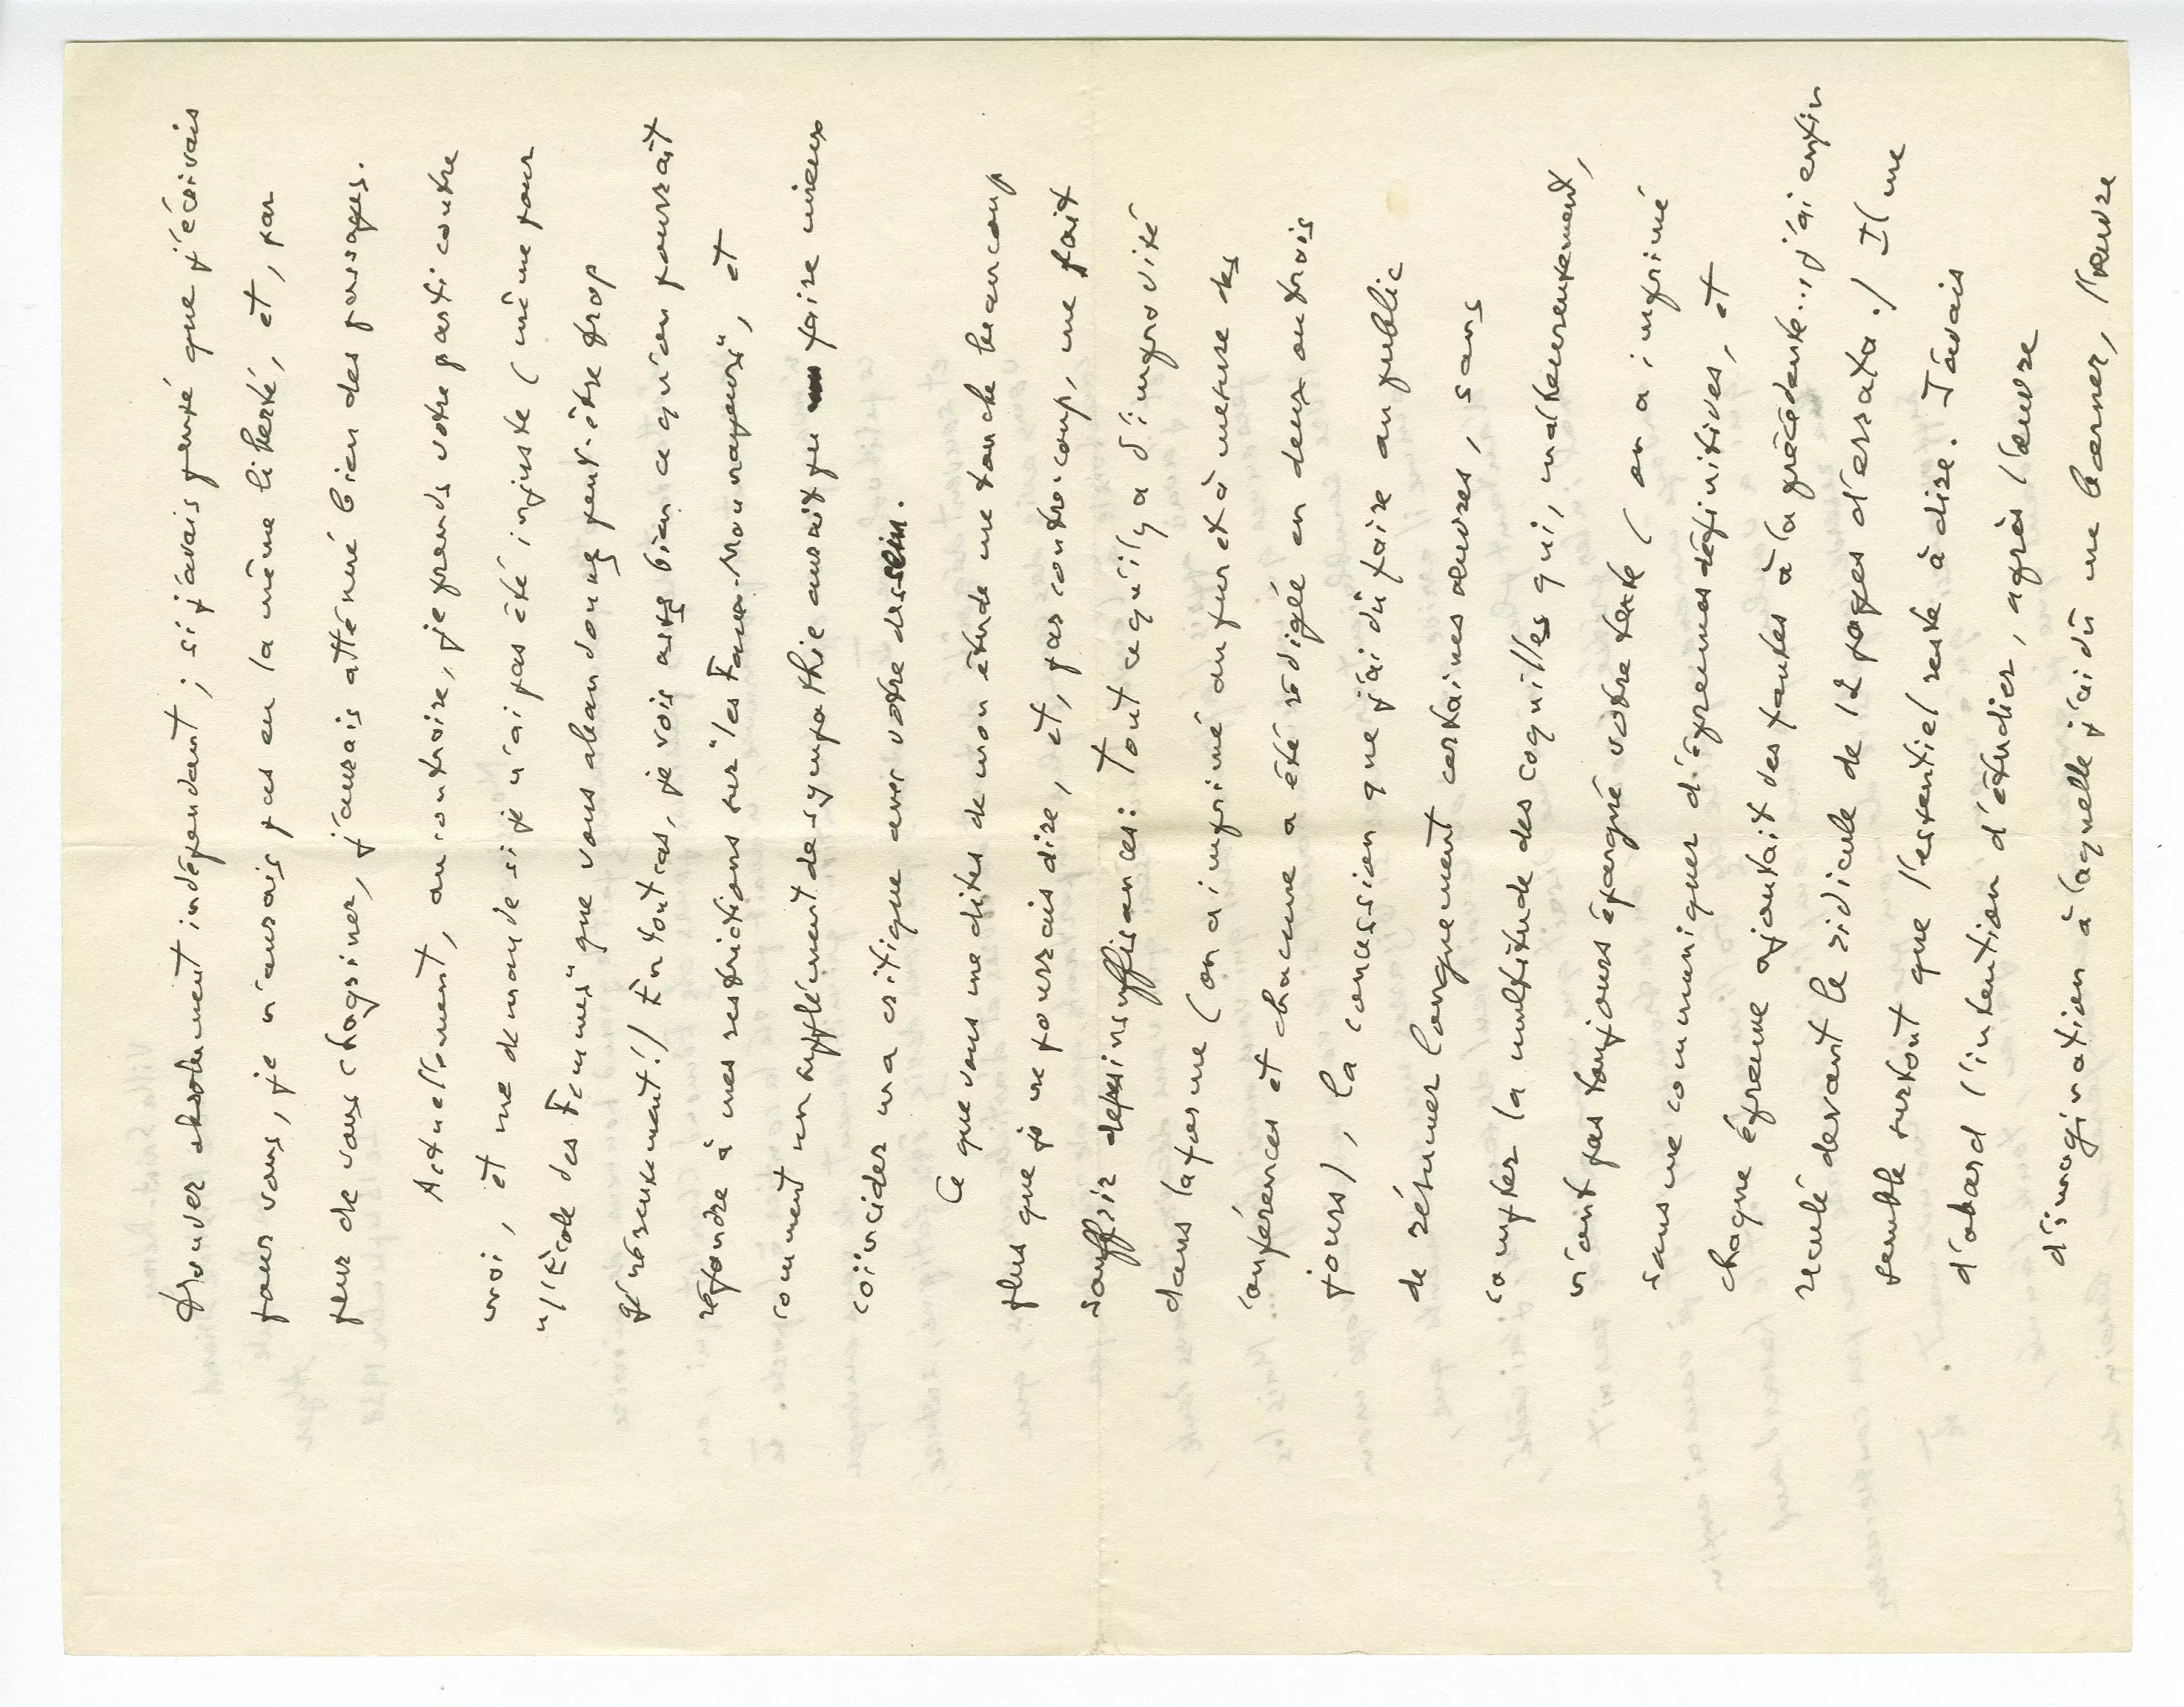 trouver absolument indépendant ; si j'avais pensé que j'écrivais
pour vous, je n'aurais pas eu la même liberté, et, par
peur de vous chagriner, j'aurais atténué bien des passages.
Actuellement, au contraire, je prends votre parti contre
moi, et me demande si je n'ai pas été injuste (même pour
"l'École des Femmes" que vous abandonnez peut-être trop
généreusement!) En tout cas, je vois assez bien ce qu'on pourrait
répondre à mes restrictions sur "les Faux-Monnayeurs", et
comment un supplément de sympathie aurait pu faire mieux
coïncider ma critique avec votre dessein.
Ce que vous me dites de mon étude me touche beaucoup
plus que je ne pourrais dire, et, par contre-coup, me fait
souffrir de ses insuffisances : Tout ce qu'il y a d'improvisé
dans la forme (on a imprimé au fur et à mesure des
conférences et chacune a été rédigée en deux ou trois
jours), la concession que j'ai dû faire au public
de résumer longuement certaines œuvres, sans
compter la multitude des coquilles qui, malheureusement,
n'ont pas toujours épargné votre texte (on a imprimé
sans me communiquer d'épreuves définitives, et
chaque épreuve ajoutait des fautes à la précédente... j'ai enfin
reculé devant le ridicule de 12 pages d'errata.) Il me
semble surtout que l'essentiel reste à dire. J'avais
d'abord l'intention d'étudier, après l'œuvre
d'imagination à laquelle j'ai dû me borner, l'œuvre